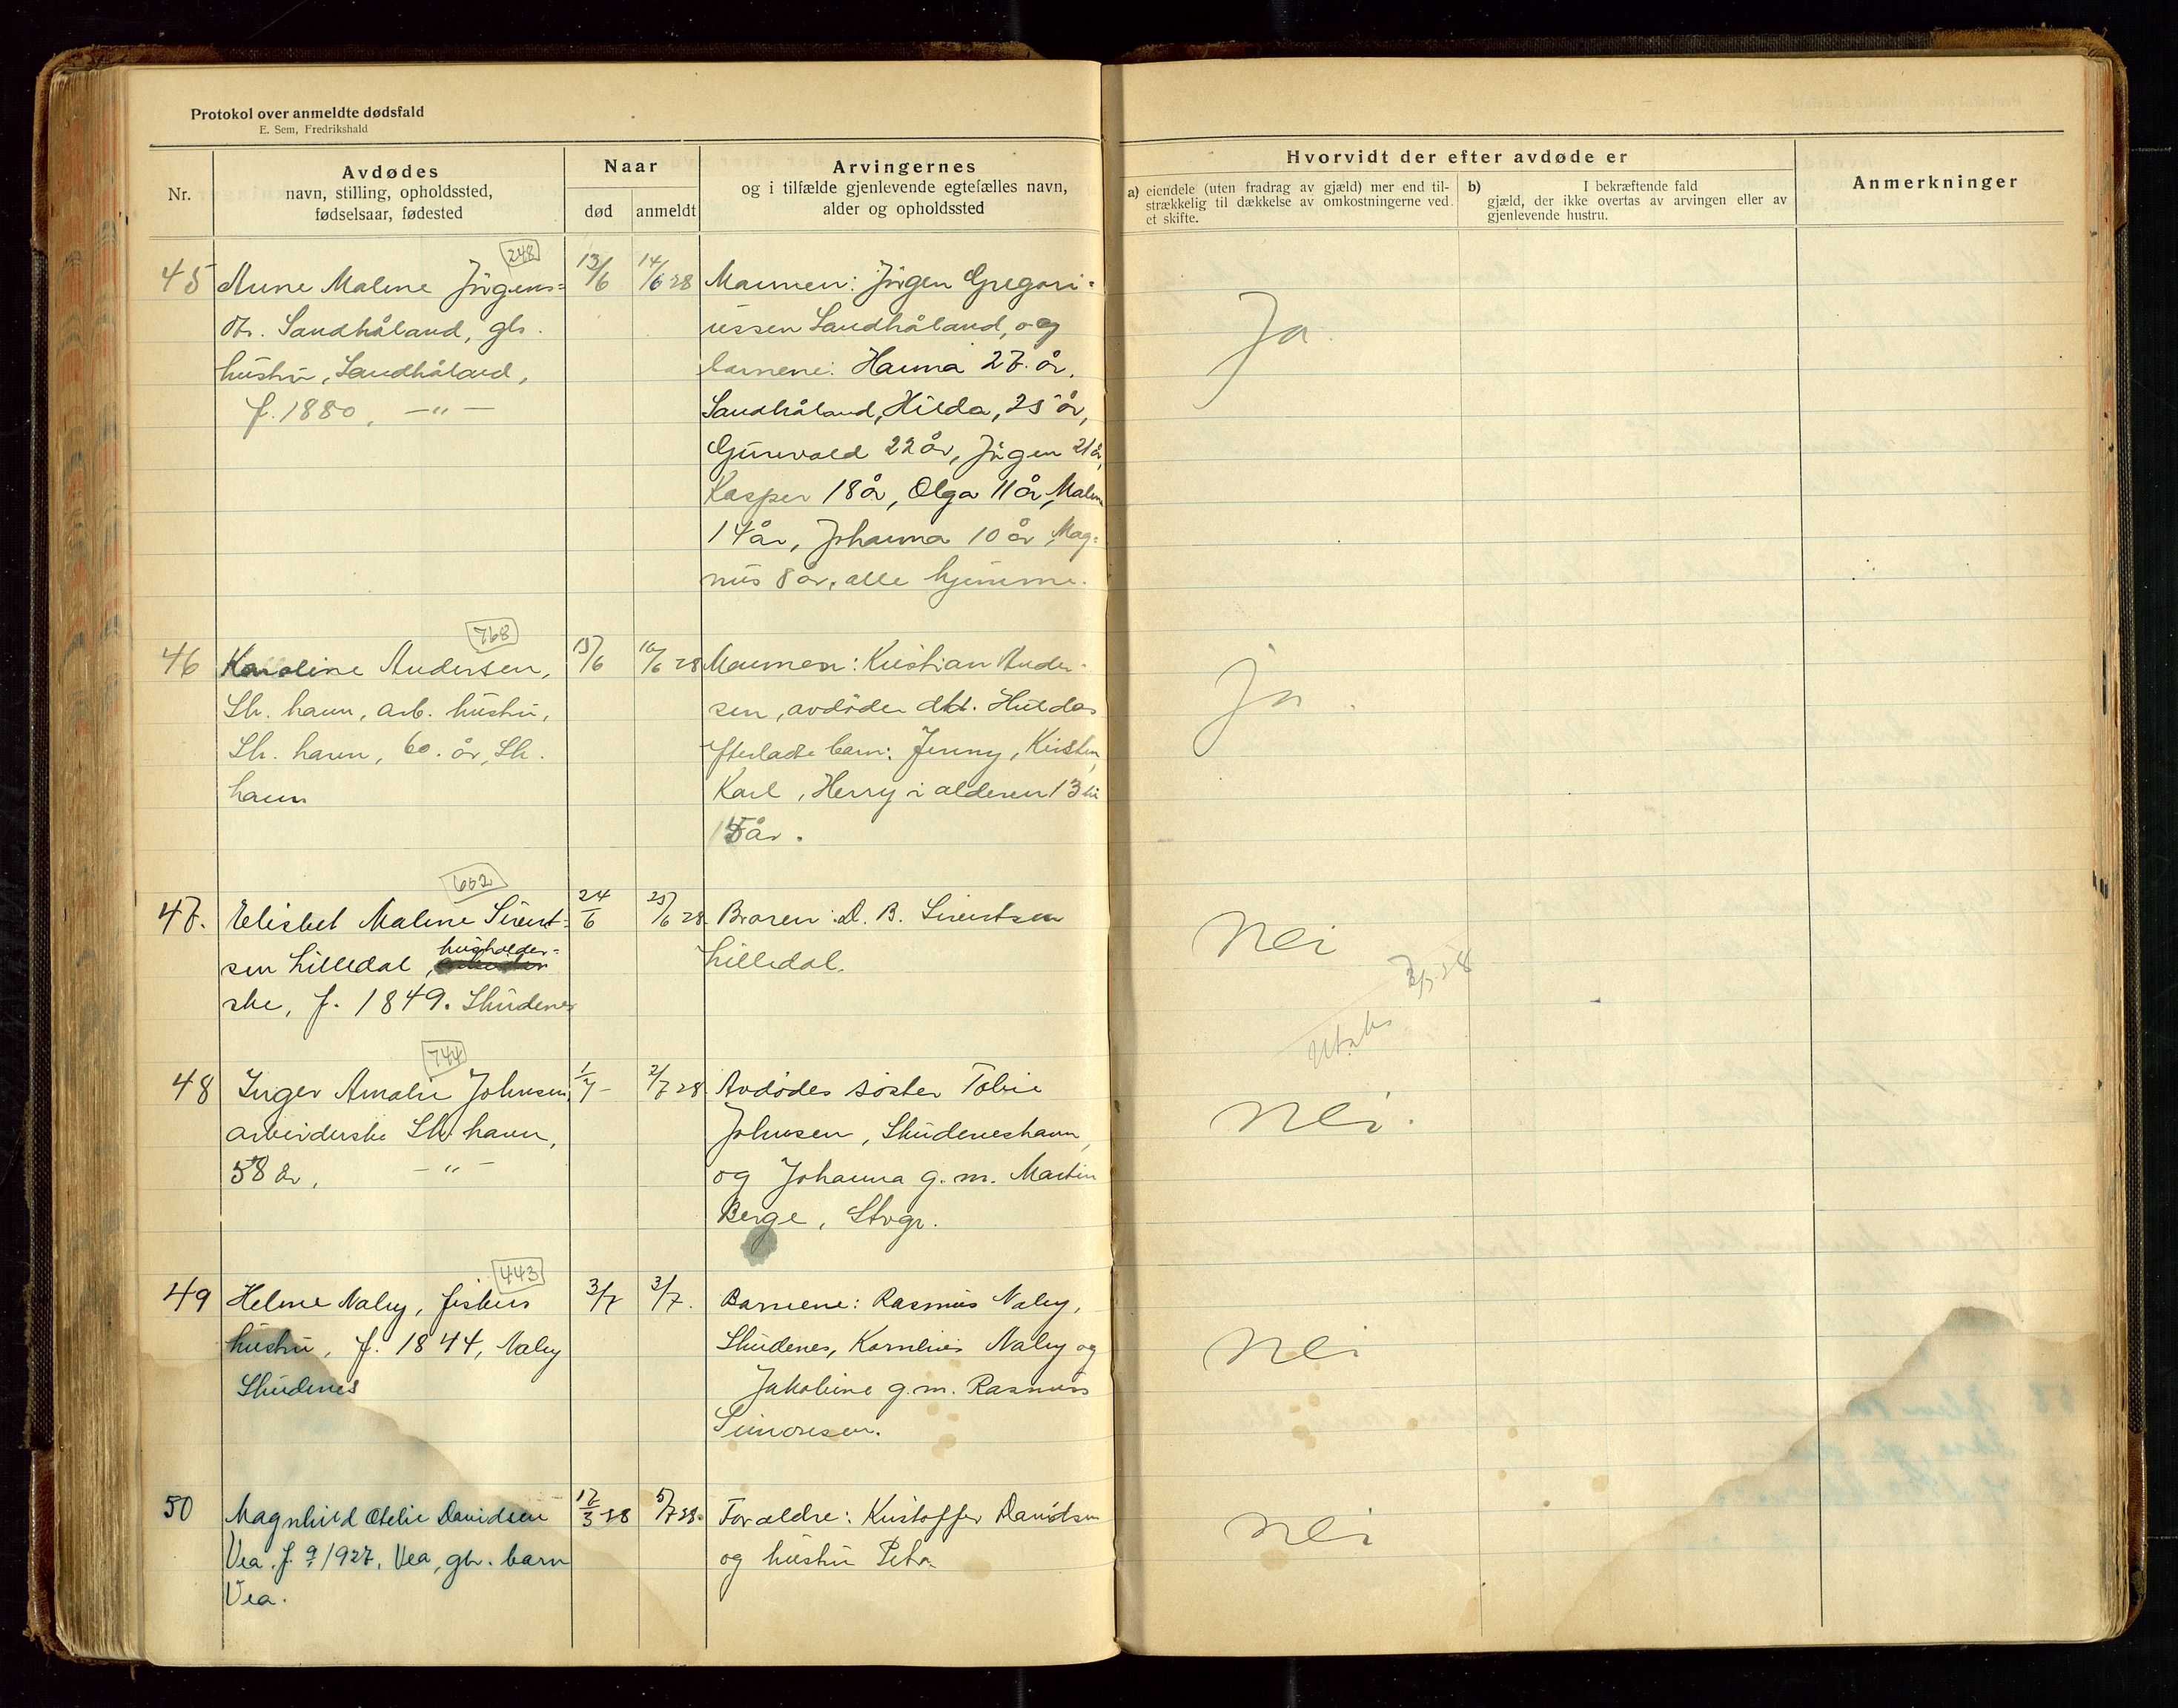 Protokol over anmeldte dødsfald
E. Sem, Fredrikshald
Nr.
Avdødes
navn, stilling, opholdssted,
fødselsaar, fødested
Naar
død
anmeldt
Arvingernes
og i tilfælde gjenlevende egtefælles navn,
alder og opholdssted
Hvorvidt der efter avdøde er
a) eiendele (uten fradrag av gjæld) mer end til-
strækkelig til dækkelse av omkostningerne ved
et skifte.
b) I bekræftende fald
gjæld, der ikke overtas av arvingen eller av
gjenlevende hustru.
Anmerkninger
248
45 Anne Malene Jörgens=
dtr. Sandhåland, gbr.
hustru, Sandhåland,
f. 1880, —"—
13/6
14/6 28
Mannen: Jörgen Gregori-
ussen Sandhåland, og
barnene: Hanna 27 år,
Sandhåland, Hilda, 25 år,
Gunvald 22 år, Jörgen 21 år,
Kasper 18 år, Olga 11 år, Malene
14 år, Johanna 10 år, Mag=
nus 8 år, alle hjemme.
Ja.
768
46 Karoline Andersen,
Sk. havn, arb. hustru,
Sk. havn, 60. år, Sk.
havn
15/6
16/6 28
Mannen: Kristian Ander-
sen, avdöde dtr. Huldas
efterladte barn: Jenny, Kirsten,
Karl, Henry i alderen 13 til
år.
Ja.
662
47. Elisbet Malene Sivert=
sen Lilledal, husholder=
ske, f. 1849. Skudenes
24/6
25/6 28
Broren: D. B. Sivertsen
Lilledal.
Nei
744
48 Inger Amalie Johnsen,
arbeiderske Sk. havn,
58 år, —"—
1/7 -
2/7 28
Avdödes söster Tobie
Johnsen, Skudeneshavn,
og Johanna g. m. Martin
Berge, Stvgr.
Nei.
443
49 Helene Naley, fiskers
hustru, f. 1844, Naley
Skudenes
3/7
3/7.
Barnene: Rasmus Naley,
Skudenes, Kornelius Naley og
Jakobine g. m. Rasmus
Simonsen.
Nei
50 Magnhild Otelie Davidsen
Vea. f. 9/1927, Vea, gbr. barn
Vea.
17/3 28
5/7 28.
Foreldre: Kristoffer Davidsen
og hustru Petra
Nei